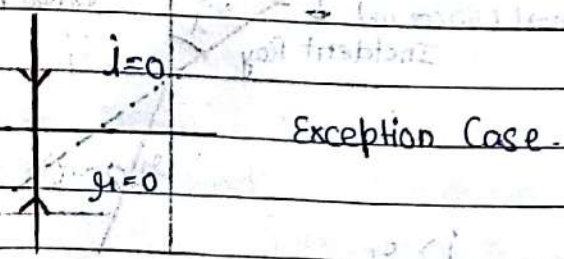 i=0
Exception Case.
r=0